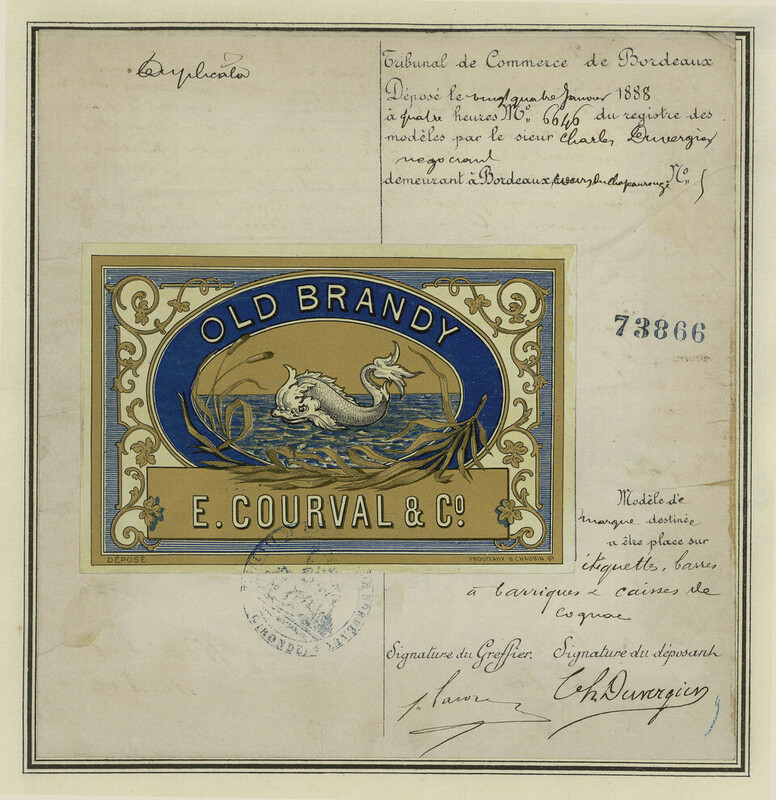 Duplicata
Tribunal de Commerce de Bordeaux
Déposé le vingt quatre Janvier 1888
à quatre heures No 6646 du registre des
modèles par le sieur Charles Duvergier
negociant
demeurant à Bordeaux, cours du Chapeaurouge No 5
OLD BRANDY
E. COURVAL & Co
DÉPOSÉ
PROUTEAUX & CHAUBIN, BX
73866
Modèle de
marque destinée
a être place sur
étiquettes, barres
à barriques & caisses de
cognac
Signature du Greffier. Signature du déposant
Ch. Duvergier